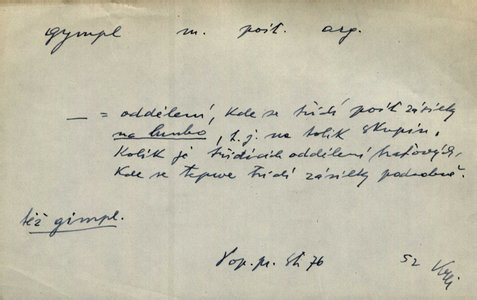 gympl m. pošt. arg.
— = oddělení, kde se třídí pošt. zásilky
na hrubo, t. j. na tolik skupin,
kolik je třídících oddělení traťových,
kde se teprve třídí zásilky podrobně.
též gimpl.
Pop. pr. 76
52